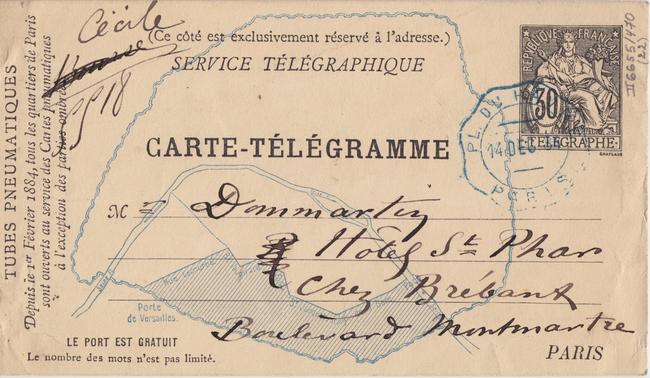 Cécile
5518
TUBES PNEUMATIQUES
Depuis le 1er Février 1884, tous les quartiers de Paris
sont ouverts au service des Cartes pneumatiques
à l'exception des parties ombrées
(Ce côté est exclusivement réservé à l'adresse.)
SERVICE TÉLÉGRAPHIQUE
CARTE-TÉLÉGRAMME
RÉPUBLIQUE FRANÇAISE
30
TÉLÉGRAPHE
III 6655/470
(22)
PL. DU
14 DEC
PARIS
M Dommartin
Hôtel St Phar
Chez Brébant
Boulevard Montmartre
PARIS
Porte
de Versailles
LE PORT EST GRATUIT
Le nombre des mots n'est pas limité.